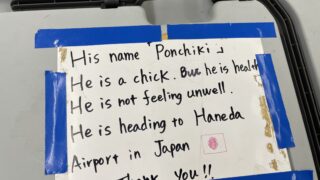 His name "Ponchiki"
He is a chick. But he is health
He is not feeling unwell.
He is heading to Haneda
Airport in Japan
Thank You!!